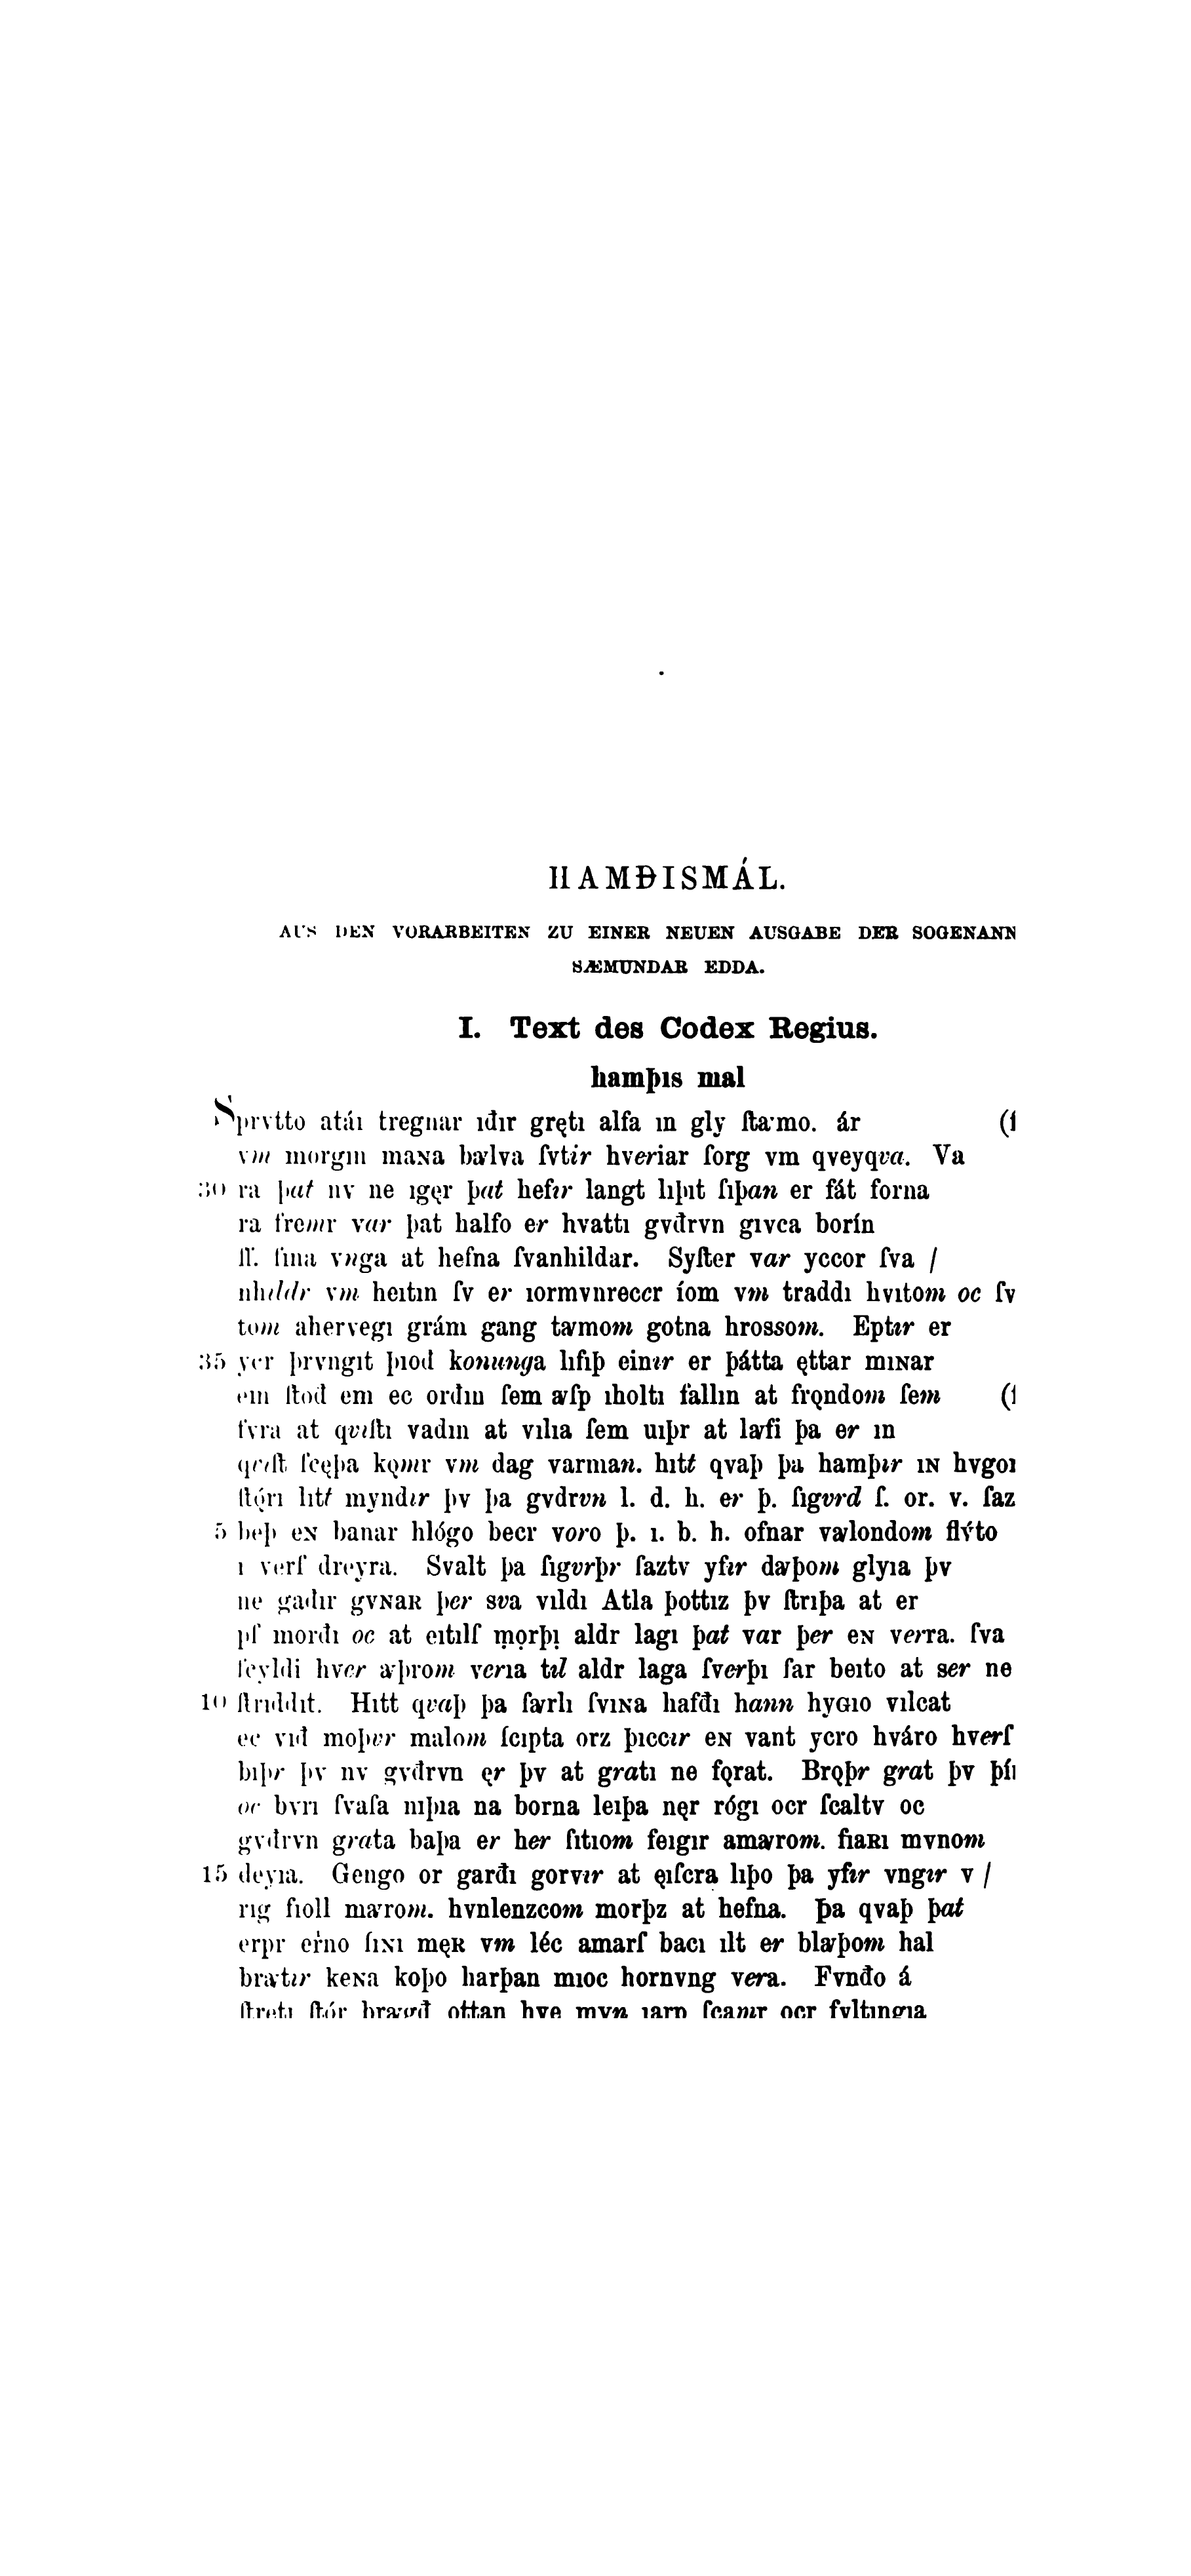 HAMÐISMÁL.
AUS DEN VORARBEITEN ZU EINER NEUEN AUSGABE DER SOGENANN
SÆMUNDAR EDDA.
I. Text des Codex Regius.
hamþıs mal
Sprvtto atái tregnar ıðır grętı alfa ın gly ſtaꝩmo. ár (f
vm morgın maɴa baꝩlva ſvtir hveriar ſorg vm qveyqva. Va
30 ra þat nv ne ıgęr þat hefır langt lıþıt ſıþan er fát forna
ra fremr var þat halfo er hvattı gvðrvn gıvca borín
ſſ. ſına vnga at hefna ſvanhildar. Syſter var yccor ſva /
nhıldr vm heıtın ſv er ıormvnreccr íom vm traddı hvıtom oc ſv
tom ahervegı grám gang taꝩmom gotna hrossom. Eptır er
35 ycr þrvngıt þıod konunga lıfıþ einır er þátta ęttar mıɴar
em ſtoð em ec orðın ſem aꝩſp ıholtı fallın at frǫndom ſem (f
fvra at qvıſtı vadın at vılıa ſem uıþr at laꝩfi þa er ın
qvıſt ſcęþa kǫmr vm dag varman. hıtt qvaþ þa hamþır ıɴ hvgoı
ſtǫ́rı lıtt myndır þv þa gvdrvn l. d. h. er þ. ſıgvrd ſ. or. v. ſaz
5 beþ eɴ banar hlógo becr voro þ. ı. b. h. ofnar vaꝩlondom flv́to
ı verſ dreyra. Svalt þa ſıgvrþr ſaztv yfır daꝩþom glyıa þv
ne gadır gvɴaʀ þer sva vıldı Atla þottız þv ſtrıþa at er
pſ morðı oc at eıtılſ mǫrþı aldr lagı þat var þer eɴ verra. ſva
ſcyldi hver aꝩþrom verıa tıl aldr laga ſverþı ſar beıto at ser ne
10 ſtrıddıt. Hıtt qvaþ þa ſaꝩrlı ſvıɴa hafðı hann hyɢıo vılcat
ec vıð moþvr malom ſcıpta orz þıccır eɴ vant ycro hváro hverſ
bıþr þv nv gvðrvn ęr þv at gratı ne fǫrat. Brǫþr grat þv þíı
oc bvrı ſvaſa nıþıa na borna leıþa nęr rógı ocr ſcaltv oc
gvðrvn grata baþa er her ſıtıom feigır amaꝩrom. fiaʀı mvnom
15 deyıa. Gengo or garðı gorvır at ęıſcra lıþo þa yfır vngır v /
rıg fıoll maꝩrom. hvnlenzcom morþz at hefna. Þa qvaþ þat
erpr eıno ſıɴı męʀ vm léc amarſ bacı ılt er blaꝩþom hal
braꝩtır keɴa koþo harþan mıoc hornvng vera. Fvnðo á
ſtrętı ſtór braꝩgð ottan hve mvn ıarp ſcamr ocr fvltıngıa